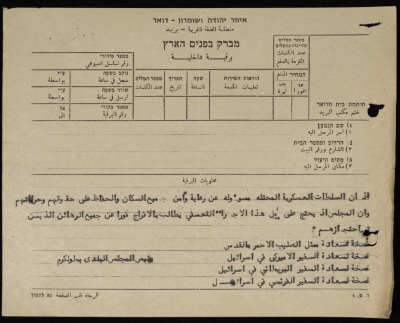 איזור יהודה ושומרון - דואר
منطقة الضفة الغربية - بريد
מברק בפנים הארץ
برقية داخلية
מספר המלים
عدد الكلمات
המחיר الثمن
הוראות השירות
تعليمات الخدمة
השעה
الساعة
התאריך
التاريخ
מספר המלים
عدد الكلمات
מספר מקורי
נתקב בשעה
سجل في ساعة
ע״י
بواسطة
שודר בשעה
ارسل في ساعة
ע״י
بواسطة
מספר המברק
رقم البرقية
חותמת בית הדואר
ختم مكتب البريد
1) שם הנמען
1) اسم المرسل اليه
2) הרחוב ומספר הבית
2) الشارع ورقم البيت
3) מקום היעוד
3) مكان المرسل اليه
محتويات البرقية
اذ ان السلطات العسكرية المحتله مسؤوله عن رعاية وامن جميع السكان والحفاظ على حقوقهم وحرياتهم
وان المجلس اذ يحتج على مثل هذا الاجراء التعسفي يطالب بالافراج فورا عن جميع الرهائن الذين
تم احتجازهم "
نسخة لسعادة ممثل الصليب الاحمر بالقدس
نسخة لسعادة السفير الاميركي في اسرائيل
رئيس المجلس البلدي بطولكرم
نسخة لسعادة السفير البريطاني في اسرائيل
نسخة لسعادة السفير الفرنسي في اسرائيل
الرجاء قلب الصفحة